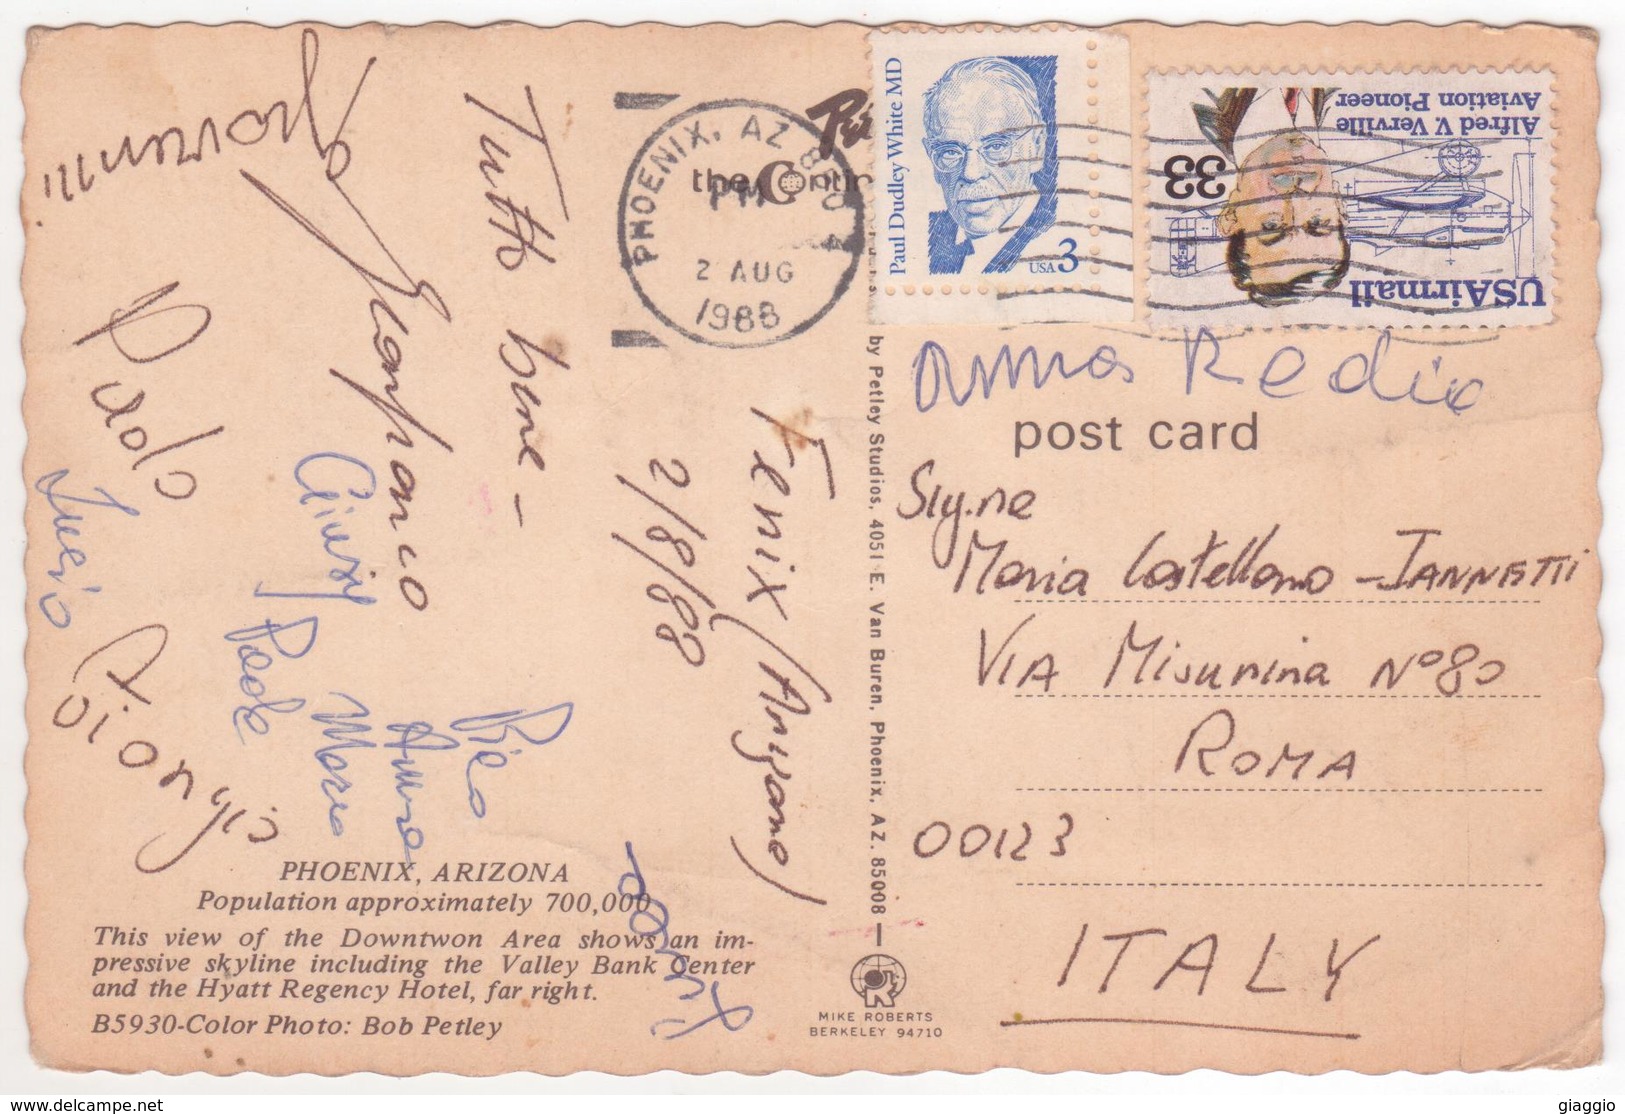 PHOENIX, AZ
PM
2 AUG
1988
the Contin
Paul Dudley White MD
USA 3
Alfred V. Verville
Aviation Pioneer
33
USAirmail
post card
Sig.na
Maria Castellano - IANNETTI
VIA Misurina N° 80
ROMA
00123
ITALY
Fenix (Arizona)
2/8/88
Tutto bene -
Giampaolo
Giovanni
Paolo
Lucio
Giusy
Paola
Dionigio
Mara
Anna
by Petley Studios, 4051 E. Van Buren, Phoenix, AZ. 85008 —
PHOENIX, ARIZONA
Population approximately 700,000
This view of the Downtwon Area shows an im-
pressive skyline including the Valley Bank Center
and the Hyatt Regency Hotel, far right.
B5930-Color Photo: Bob Petley
MIKE ROBERTS
BERKELEY 94710
delcampe.net
giaggio